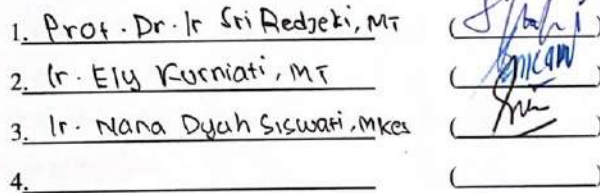 1. Prof. Dr. Ir Sri Redjeki, MT ( )
2. Ir. Ely Kurniati, MT ( )
3. Ir. Nana Dyah Siswati, Mkes ( )
4. ( )